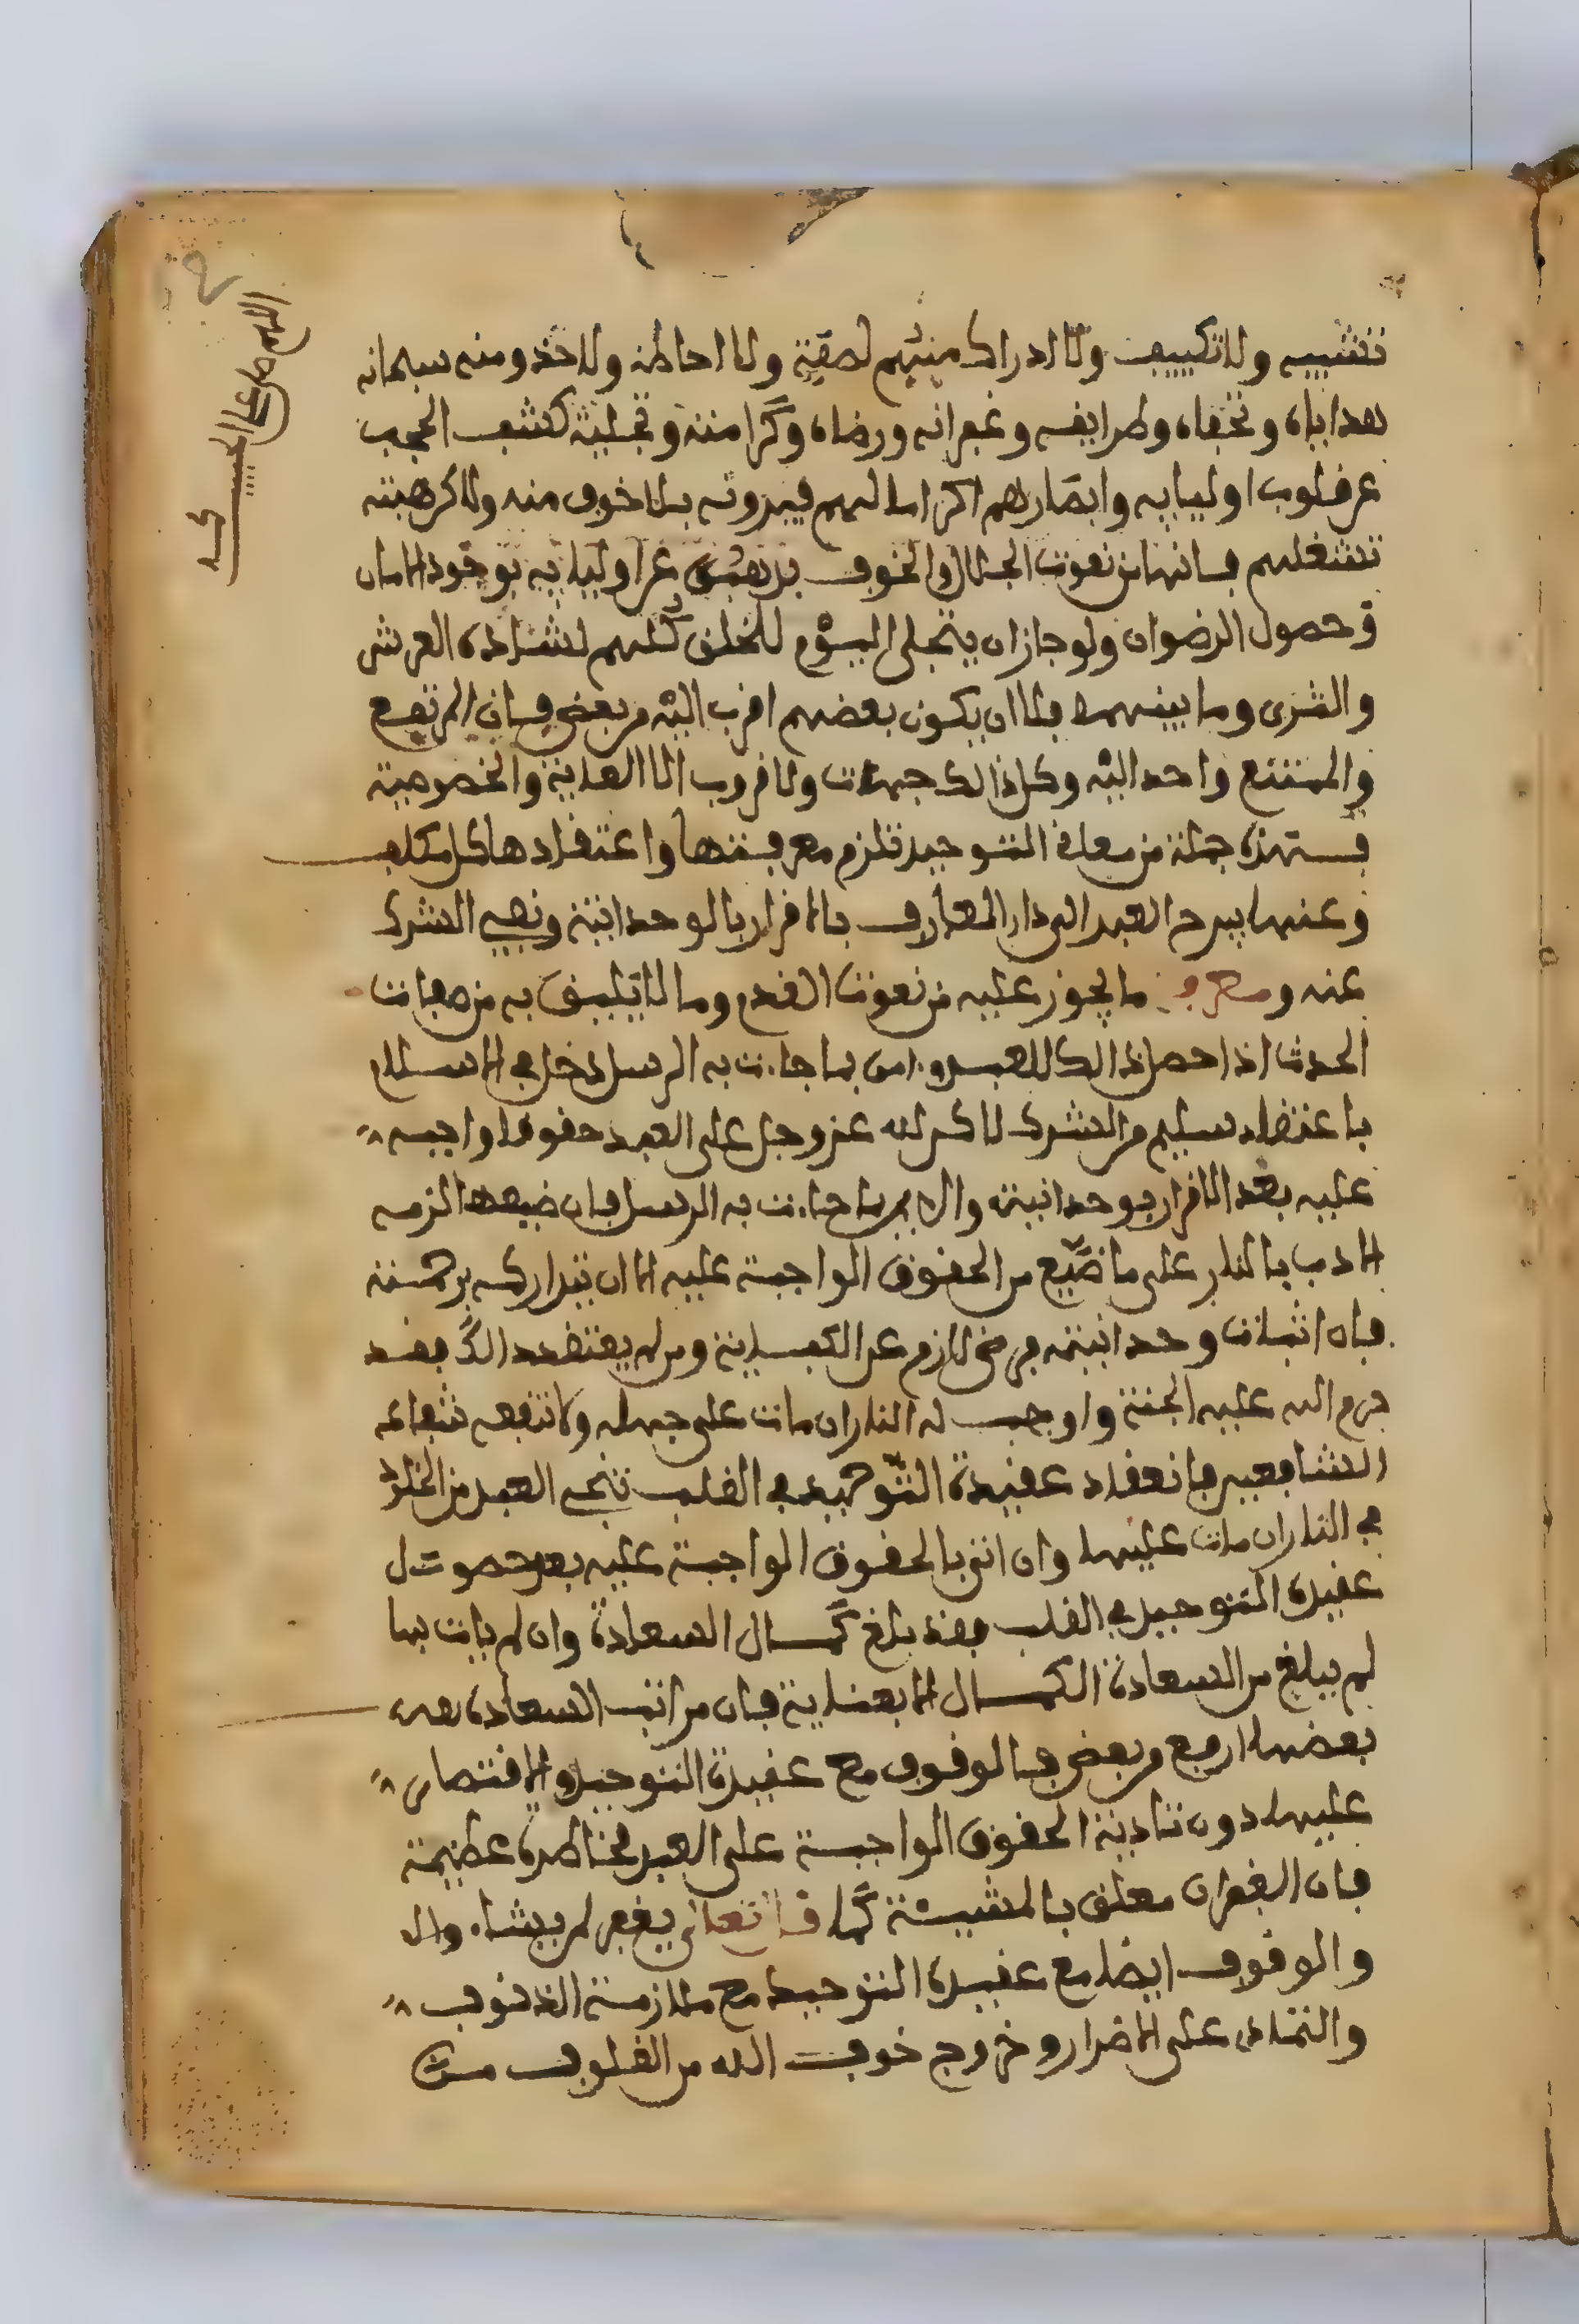 تشبيه ولا تكييف ولا ادراك منهم لصفة ولا احاطة ولا حد ومنه سبحانه
هداياه وتحفاه وطرايفه وغفرانه ورضاه وكرامته وتجليه كشف الحجب
عن قلوب اوليايه وابصارهم اكراما لهم فيرونه بلا خوف منه ولا كرهبته
تشغلهم فانها من نعوت الجلال والخوف عن اوليايه بوجود الامان
وحصول الرضوان ولو جاز ان يتجلى اليوم للخلق كلهم لشاهده العرش
والثرى وما بينهما فلا ان يكون بعضهم اقرب اليه من بعض فان المرتفع
والممتنع واحد اليه وكل ذالك جهات ولا قرب الا العناية والخصوصية
فهذه جملة من معاني التوحيد تلزم معرفتها واعتقادها كل مكلف
وعنها يبرح العبد الى دار المعارف بالاقرار بالوحدانية ونفي الشرك
عنه ومعرفة ما يجوز عليه من نعوت القدم وما لا يليق به من صفات
الحدث اذا حصل ذالك للعبد وامن بما جاءت به الرسل دخل في الاسلام
باعتقاد سليم من الشرك لاكن لله عز وجل على العبد حقوقا واجبه
عليه بعد الاقرار بوحدانيته والايمان بما جاءت به الرسل فان ضيعها الزمه
الادب بالنار على ما ضيع من الحقوق الواجبة عليه الا ان يتداركه برحمته
فان اثبات وحدانيته فرض لازم على الكفاية ومن لم يعتقد ذالك فقد
حرم الله عليه الجنة واوجب له النار ان مات على جهله ولا تنفعه شفاعة
الشافعين فانعقاد عقيدة التوحيد في القلب تنجي العبد من الخلود
في النار ان مات عليها وان اتى بالحقوق الواجبة عليه بعد حصول
عقيدة التوحيد في القلب فقد بلغ كمال السعادة وان لم يات بها
لم يبلغ من السعادة الكمال الا بعناية فان مراتب السعادة
بعضها ارفع من بعض فالوقوف مع عقيدة التوحيد والاقتصار
عليها دون تادية الحقوق الواجبة على العبد مخاطرة عظيمة
فان الغفران معلق بالمشيئة كما قال تعالى يغفر لمن يشاء
والوقوف ايضا مع عقيدة التوحيد مع ملازمة الذنوب
والتمادي على الاضرار وخروج خوف الله من القلوب
اللهم صل على